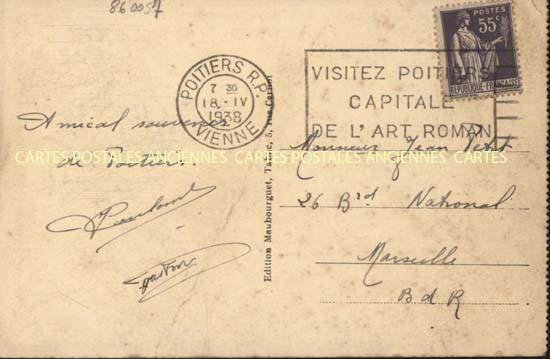 860057
POSTES
55c
RÉPUBLIQUE FRANÇAISE
POITIERS R.P.
7 30
18 · IV
1938
VIENNE
VISITEZ POITIERS
CAPITALE
DE L'ART ROMAN
Amical souvenir
de Poitiers
CARTES POSTALES ANCIENNES CARTES POSTALES ANCIENNES CARTES POSTALES ANCIENNES
Edition Maubourguet, Tarbes, 5, rue
Monsieur Jean Petit
26 Bd National
Marseille
B d R
Gaston